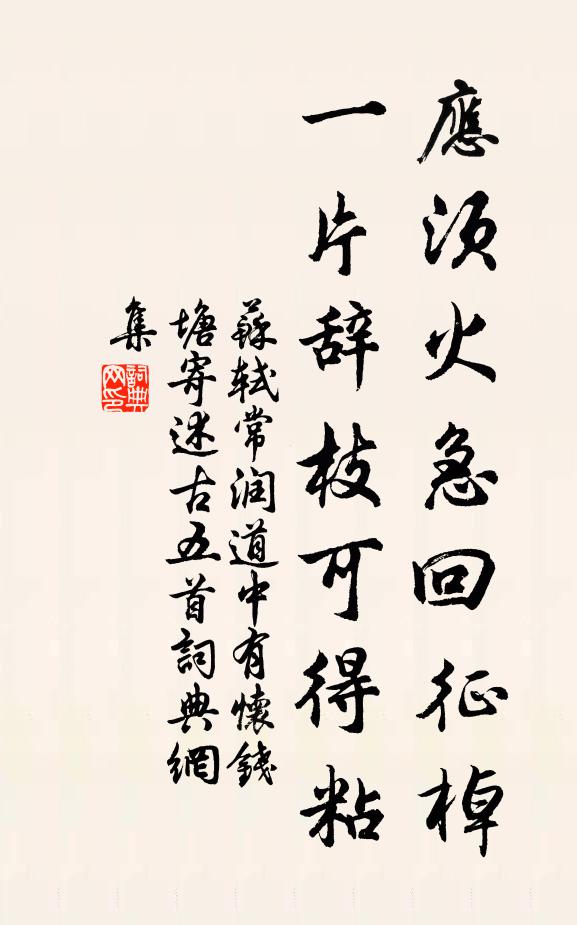 應須火急回征棹
一片辞枝可得粘
蘇軾常润道中有懷錢
塘寄述古五首詞典網
集
詞典
网印